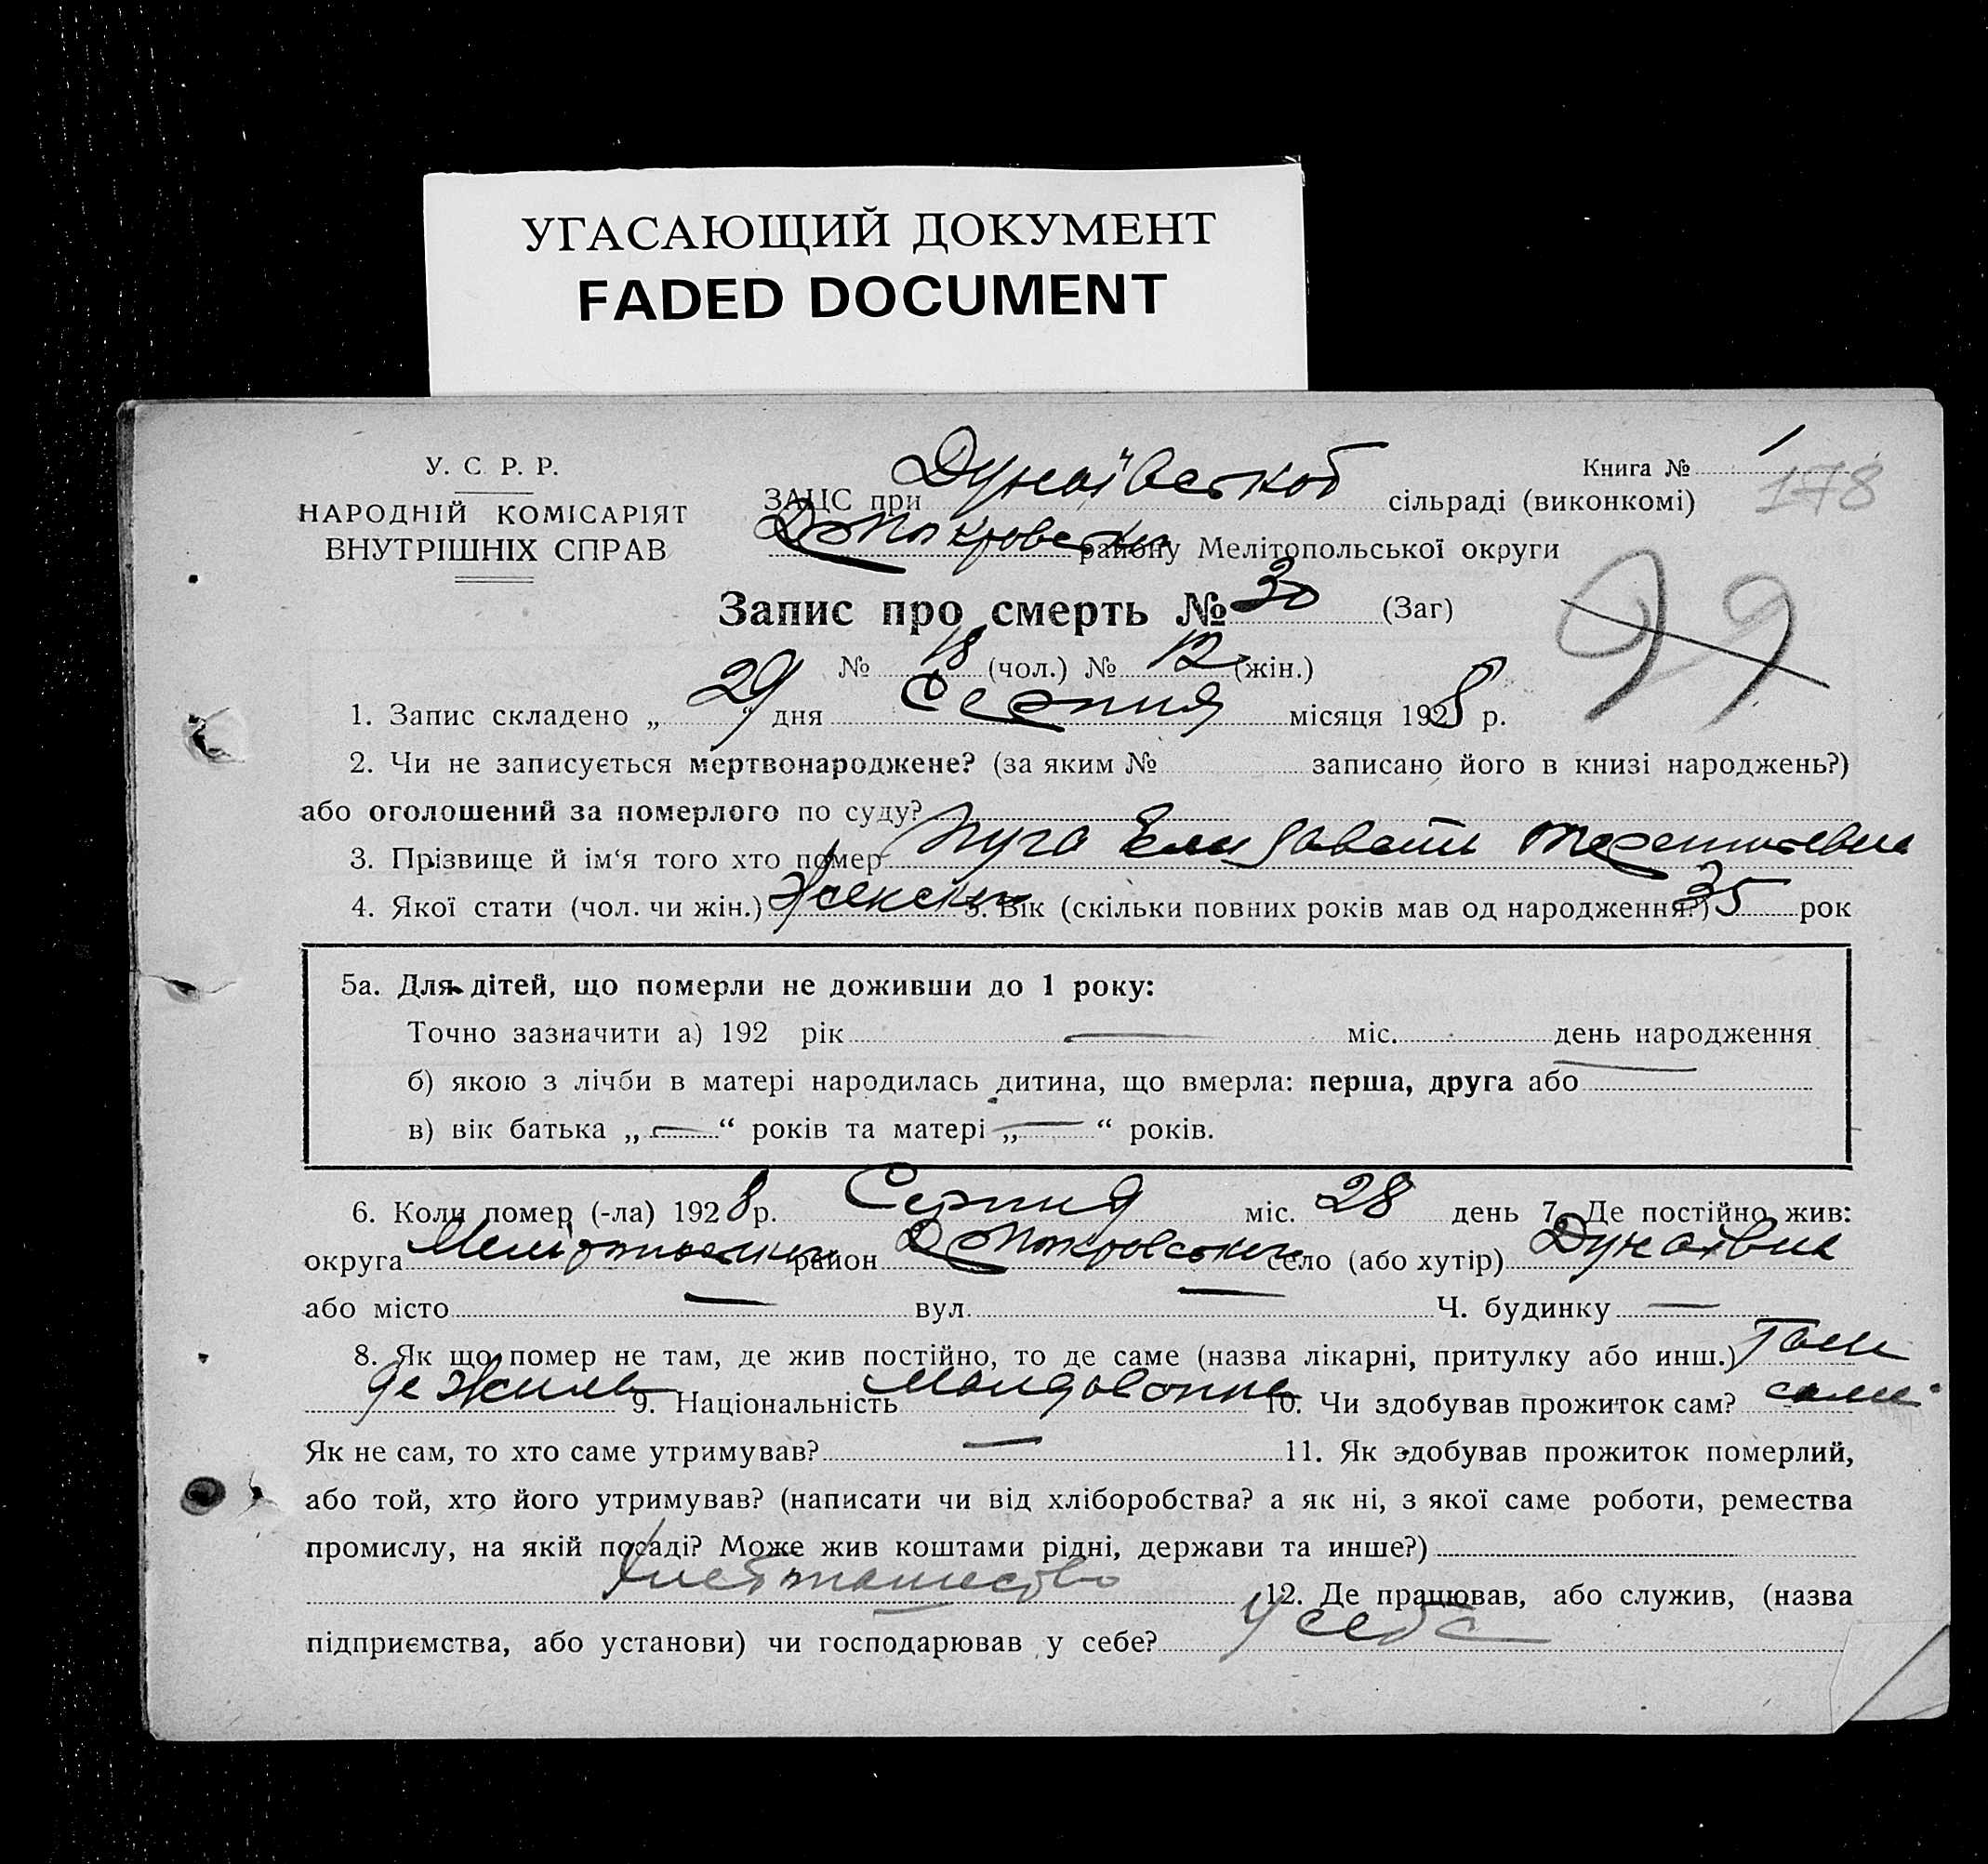 УГАСАЮЩИЙ ДОКУМЕНТ
FADED DOCUMENT
У. С. Р. Р.
НАРОДНІЙ КОМІСАРІЯТ
ВНУТРІШНІХ СПРАВ
Книга № 1
178
ЗАЦС при Дунаївській сільраді (виконкомі)
району Мелітопольської округи
Запис про смерть № 30 (Заг)
99
№ 18 (чол.) № 12 (жін.)
1. Запис складено „ 29 “ дня Серпня місяця 1928 р.
2. Чи не записується мертвонароджене? (за яким № записано його в книзі народжень?)
або оголошений за померлого по суду?
3. Прізвище й ім‘я того хто помер Пуга Елизавета Терентьевна
4. Якої стати (чол. чи жін.) Женски 5. Вік (скільки повних років мав од народження?) 35 рок
5а. Для дітей, що померли не доживши до 1 року:
Точно зазначити а) 192 рік — міс. день народження
б) якою з лічби в матері народилась дитина, що вмерла: перша, друга або —
в) вік батька „ — “ років та матері „ — “ років.
6. Коли помер (-ла) 1928 р. Серпня міс. 28 день 7. Де постійно жив:
округа район село (або хутір) Дунаївка
або місто — вул. — Ч. будинку —
8. Як що помер не там, де жив постійно, то де саме (назва лікарні, притулку або инш.) Там
де жила 9. Національність Молдованка 10. Чи здобував прожиток сам? сама
Як не сам, то хто саме утримував? — 11. Як здобував прожиток померлий,
або той, хто його утримував? (написати чи від хліборобства? а як ні, з якої саме роботи, ремества
промислу, на якій посаді? Може жив коштами рідні, держави та инше?)
12. Де працював, або служив, (назва
підприємства, або установи) чи господарював у себе? У себе